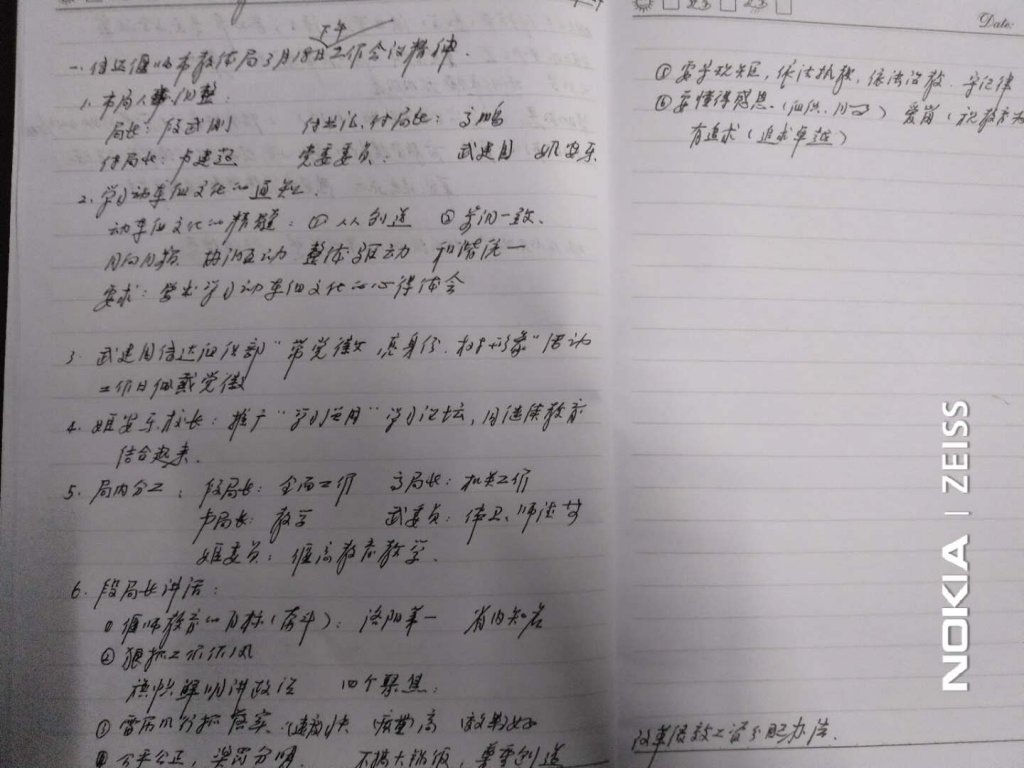 下午
一.传达偃师市教体局3月18日工作会议精神.
1.本局人事调整:
局长:段武刚 付书记、付局长:高鹏
付局长:卢建超 党委委员: 武建国 姬安乐
2.学习动车组文化的通知.
动车组文化的精髓:① 人人创造 ② 步调一致.
同向同频 协调互动 整体驱动 和谐统一
要求:学习动车组文化的心得体会
3.武建国传达组织部"带党徽、亮身份、树形象"活动
工作日佩戴党徽
4.姬安乐校长:推广"学习运用"学习论坛,同继续教育
结合起来.
5.局内分工:段局长:全面工作 高局长:机关工作
卢局长:教学 武委员:体卫、师德等
姬委员:偃高教育教学.
6.段局长讲话:
①偃师教育的目标(奋斗):洛阳第一 省内知名
②狠抓工作作风
旗帜鲜明讲政治 四个聚焦:
③雷厉风行抓落实. (速度)快 (质量)高 (效果)好
④公平公正,奖罚分明. 不搞大锅饭,尊重创造
⑤要学规矩,依法执教,依法治教.守纪律
⑥要懂得感恩.(组织、同事)爱岗(视教育为
有追求(追求卓越)
改革绩效工资分配办法.
Date:
NOKIA | ZEISS